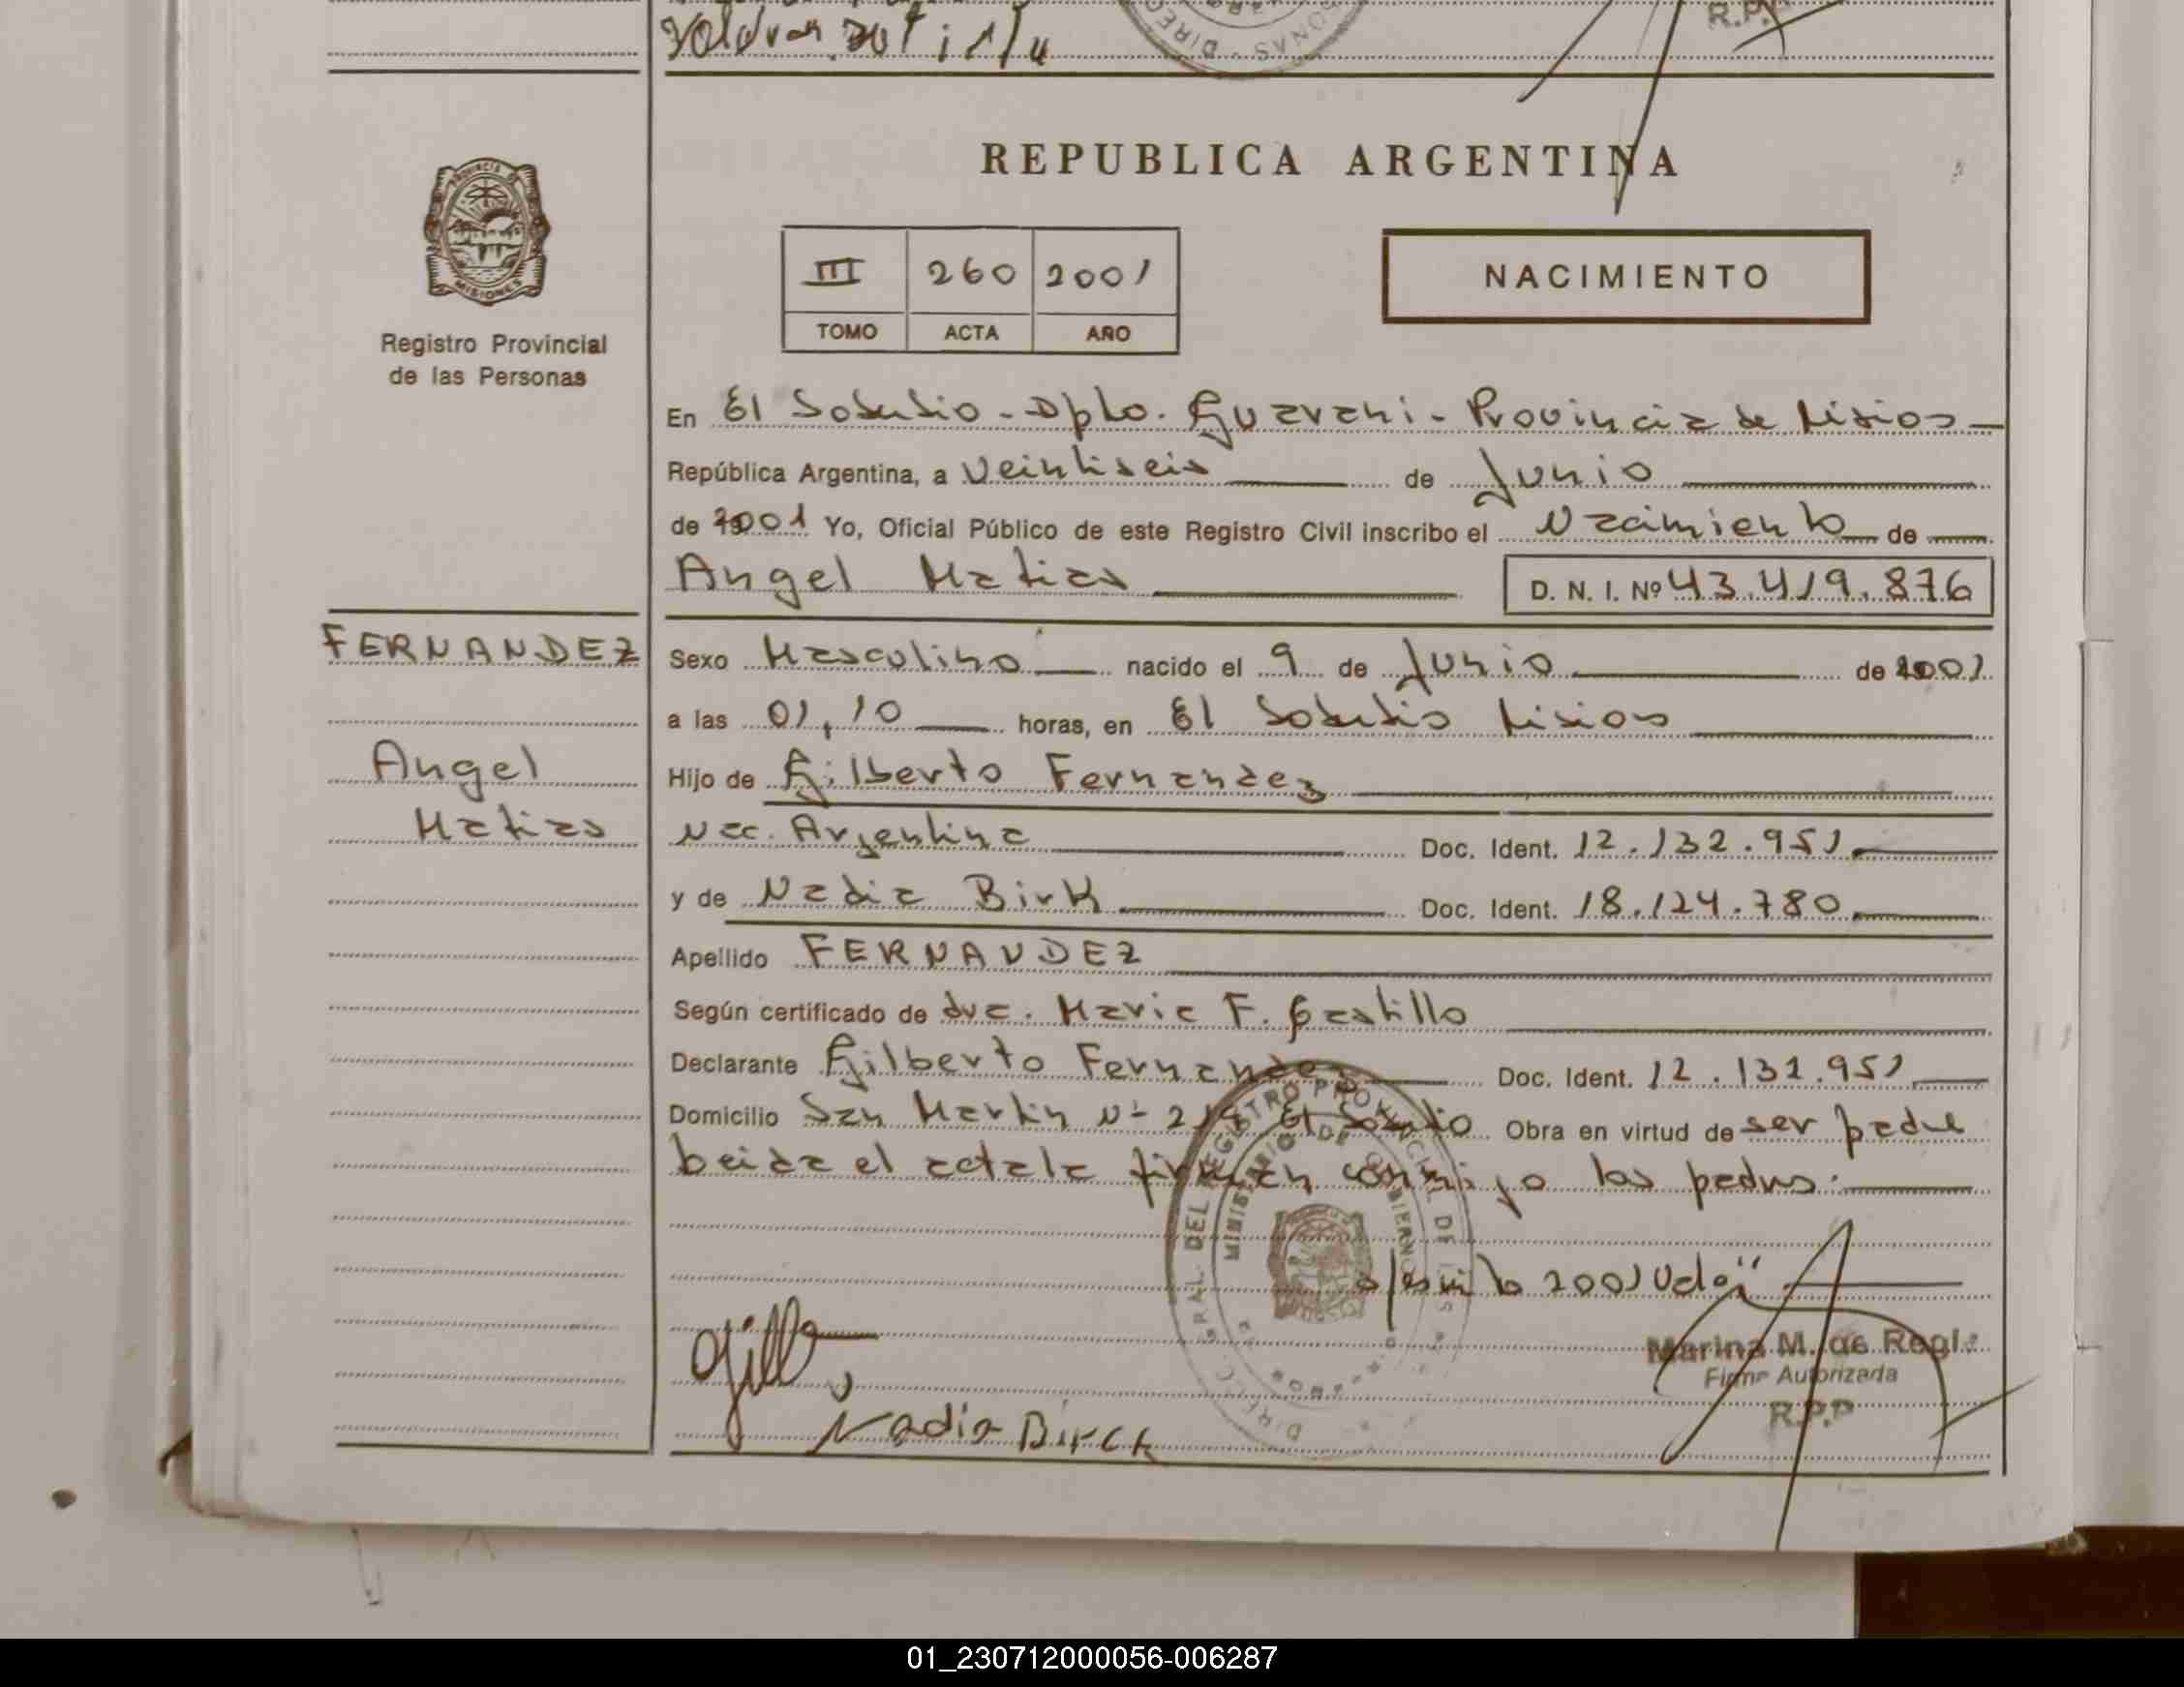 R.P.P
REPUBLICA ARGENTINA
PROVINCIA DE
MISIONES
Registro Provincial
de las Personas
III 260 2001
TOMO ACTA AÑO
NACIMIENTO
En El Soberbio - Dpto. Guarani - Provincia de Misiones
República Argentina, a Veintiseis de Junio
de 2001 Yo, Oficial Público de este Registro Civil inscribo el Nacimiento de
Angel Matias D. N. I. Nº 43.419.876
FERNANDEZ
Angel
Matias
Sexo Masculino nacido el 9 de Junio de 2001
a las 01,10 horas, en El Soberbio Misiones
Hijo de Gilberto Fernandez
Nac. Argentina Doc. Ident. 12.132.951
y de Nadia Birk Doc. Ident. 18.124.780
Apellido FERNANDEZ
Según certificado de dra. Maria F. Castillo
Declarante Gilberto Fernandez Doc. Ident. 12.132.951
Domicilio San Martin Nº El Soberbio Obra en virtud de ser padre
Leida el acta la firman conmigo los padres.
2001 Vale
Marina M. de
Firma Autorizada
R.P.P
Nadia Birck
DIREC. GRAL. DEL REGISTRO PROVINCIAL DE LAS PERSONAS
MINISTERIO DE GOBIERNO
01_230712000056-006287